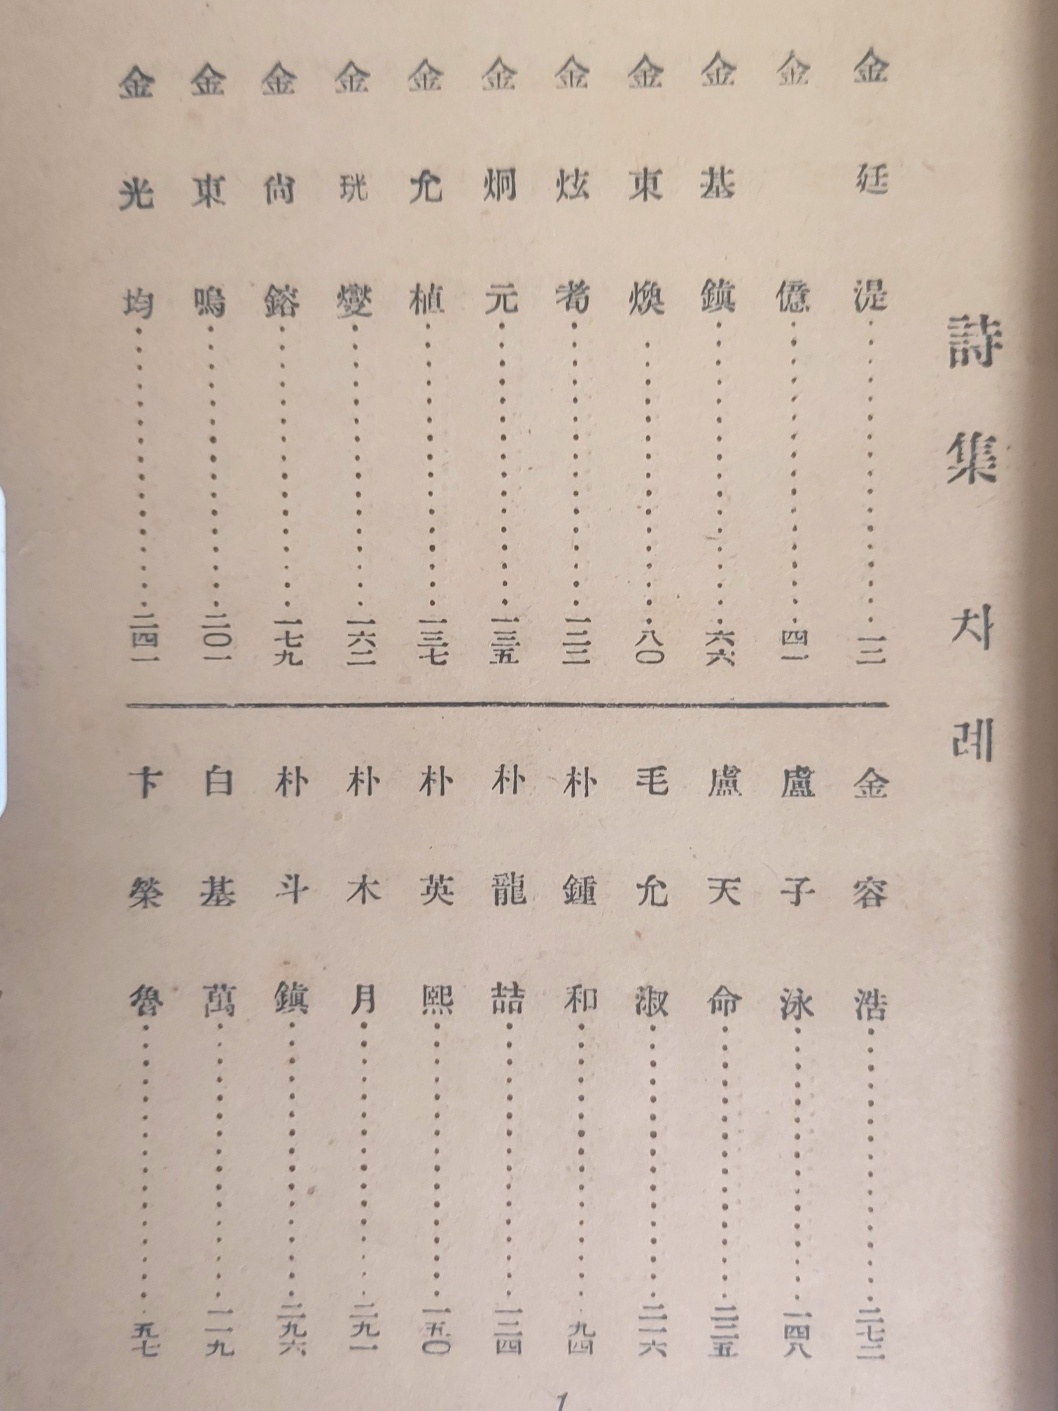 詩集 차례
金廷湜……一二
金億……四一
金基鎭……六六
金東煥……八〇
金炫耇……一二二
金炯元……一三五
金允植……一三七
金珖燮……一六二
金尙鎔……一七九
金東鳴……二〇一
金光均……二四一
金容浩……二七二
盧子泳……一四八
盧天命……二三五
毛允淑……二一六
朴鍾和……九四
朴龍喆……一二四
朴英熙……一五〇
朴木月……二九一
朴斗鎭……二九六
白基萬……一一九
卞榮魯……五七
1